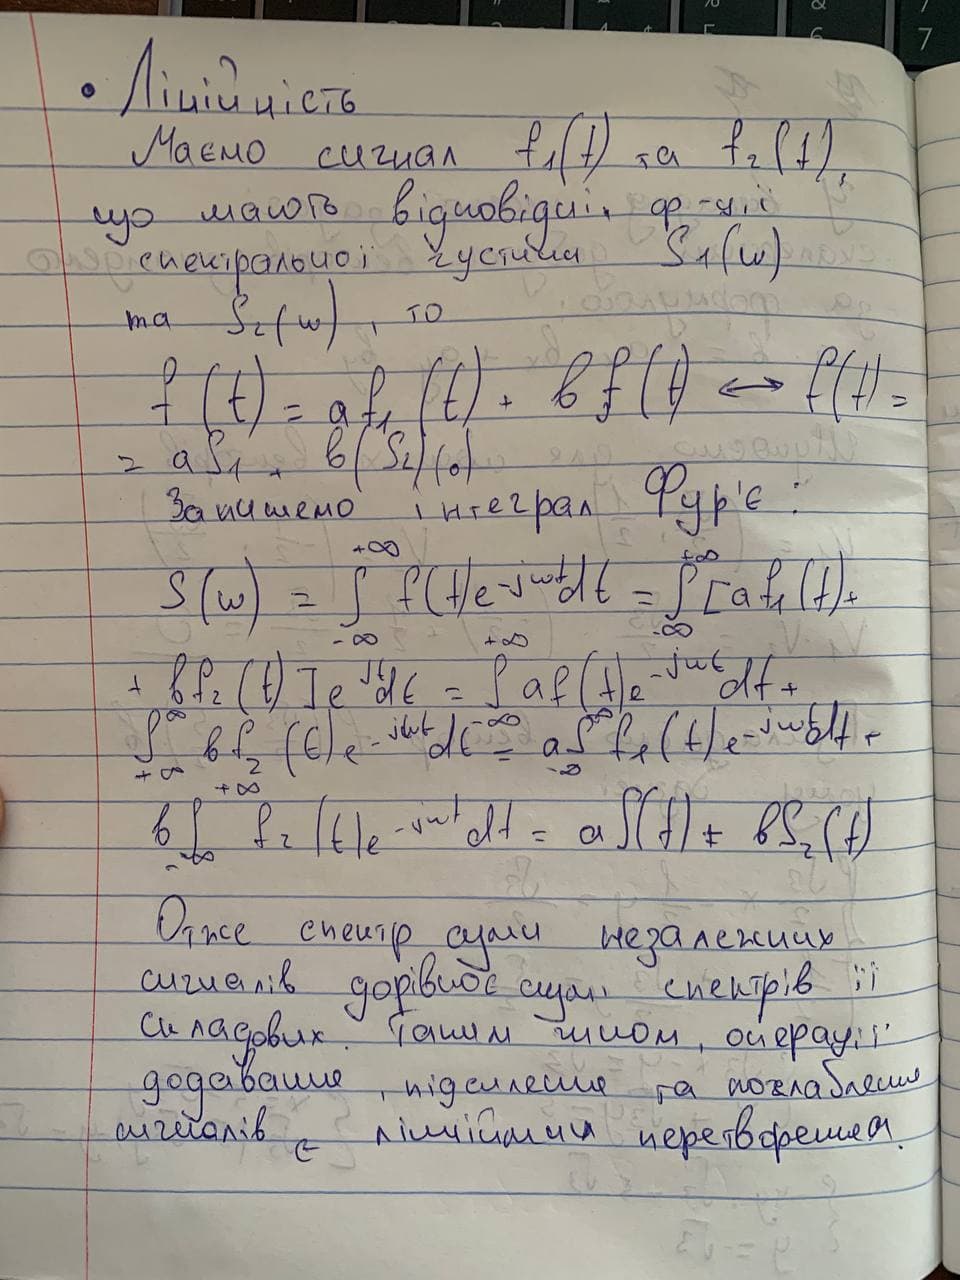 • Лінійність
Маємо сигнал f₁(t) та f₂(t),
що мають відповідні ф-ції
спектральної густини S₁(w)
та S₂(w), то
f(t) = af₁(t) + bf(t) ↔ f(t) =
= aS₁ + b(S₂)(0)
Запишемо інтеграл Фур'є:
S(w) = ∫₋∞⁺∞ f(t)e^-jwt dt = ∫₋∞⁺∞ [af₁(t)+
+ bf₂(t)]e^jt dt = ∫₋∞⁺∞ af(t)e^-jwt dt +
∫₊∞^∞ bf₂(t)e^-jwt dt = a∫₋∞^∞ f₁(t)e^-jwt dt +
b∫₋∞⁺∞ f₂(t)e^-jwt dt = aS(t) + bS₂(t)
Отже спектр суми незалежних
сигналів дорівнює сумі спектрів її
складових. Таким чином, операції
додавання, підсилення та послаблення
сигналів є лінійними перетворення.